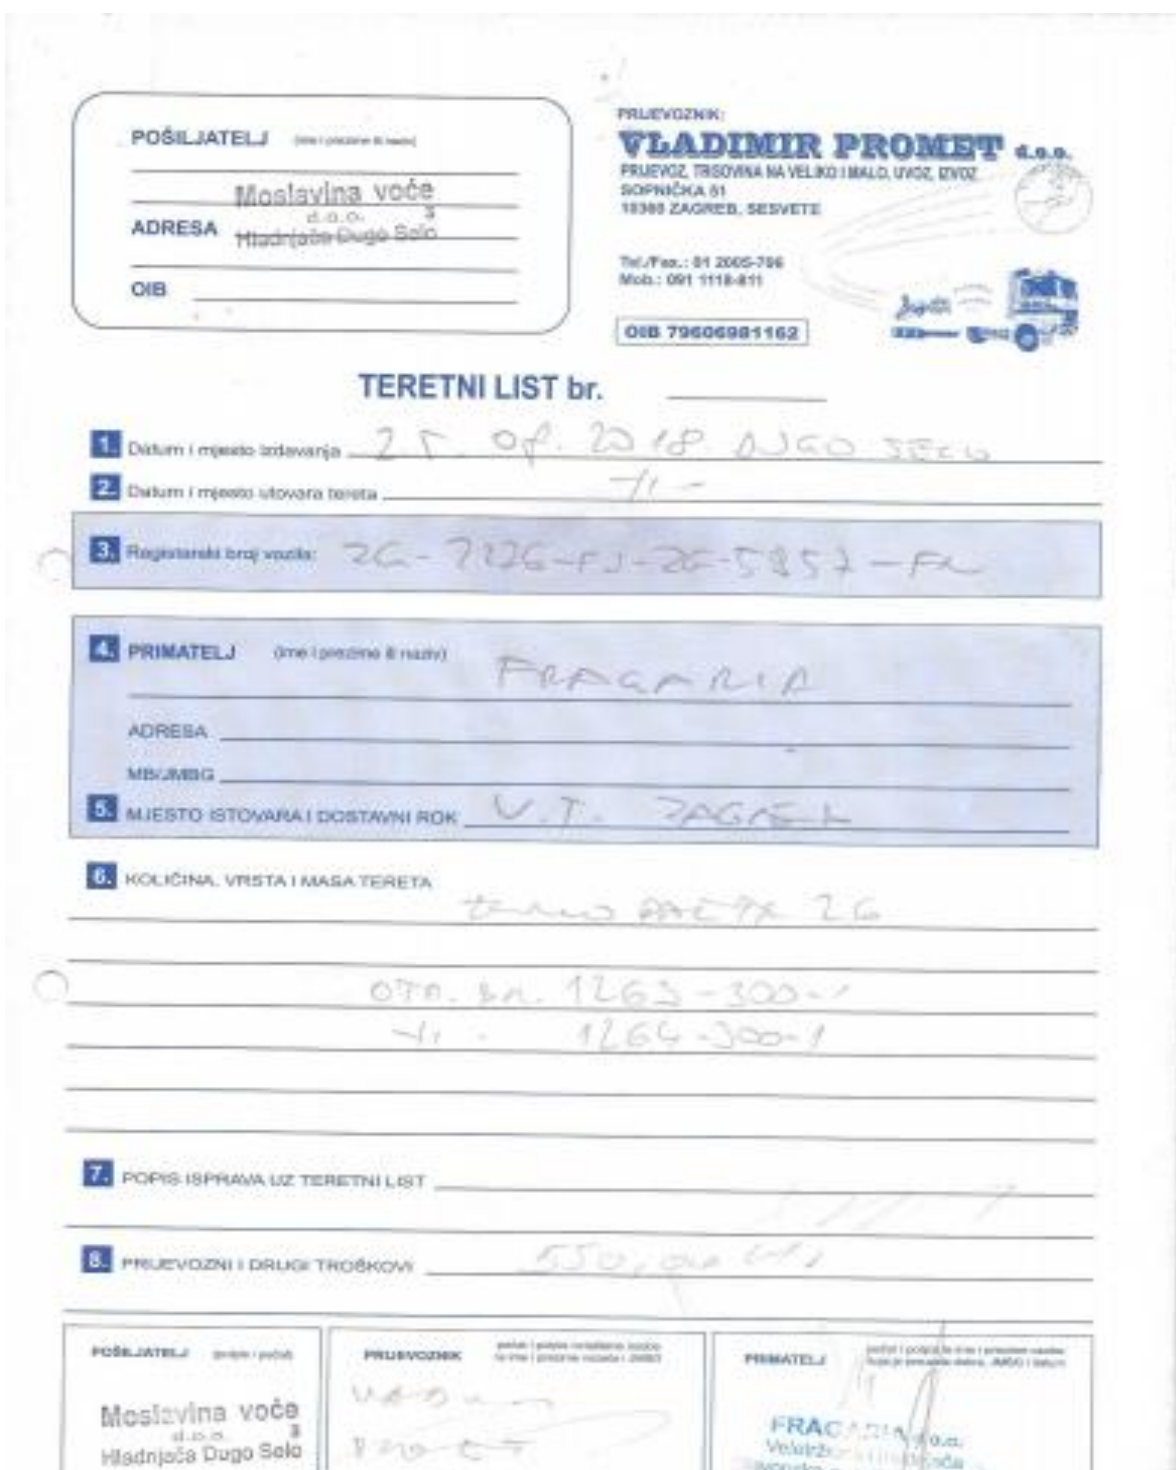 POŠILJATELJ (ime i prezime ili naziv)
Moslavina voće
d.o.o. 3
ADRESA Hladnjača Dugo Selo
OIB
PRIJEVOZNIK:
VLADIMIR PROMET d.o.o.
PRIJEVOZ, TRGOVINA NA VELIKO I MALO, UVOZ, IZVOZ
SOPNIČKA 51
10360 ZAGREB, SESVETE
Tel./Fax.: 01 2005-706
Mob.: 091 1118-811
OIB 79606981162
TERETNI LIST br.
1. Datum i mjesto izdavanja 2018. DUGO SELO
2. Datum i mjesto utovara tereta -/1-
3. Registarski broj vozila:
4. PRIMATELJ (ime i prezime ili naziv) FRAGARIA
ADRESA
MB/JMBG
5. MJESTO ISTOVARA I DOSTAVNI ROK V.T. ZAGREB
6. KOLIČINA, VRSTA I MASA TERETA
OTP. BR. 1263-300-1
-/1- 1264-300-1
7. POPIS ISPRAVA UZ TERETNI LIST
8. PRIJEVOZNI I DRUGI TROŠKOVI 550,00
POŠILJATELJ (potpis i pečat)
Moslavina voće
d.o.o. 3
Hladnjača Dugo Selo
PRIJEVOZNIK
PRIMATELJ
FRAGARIA d.o.o.